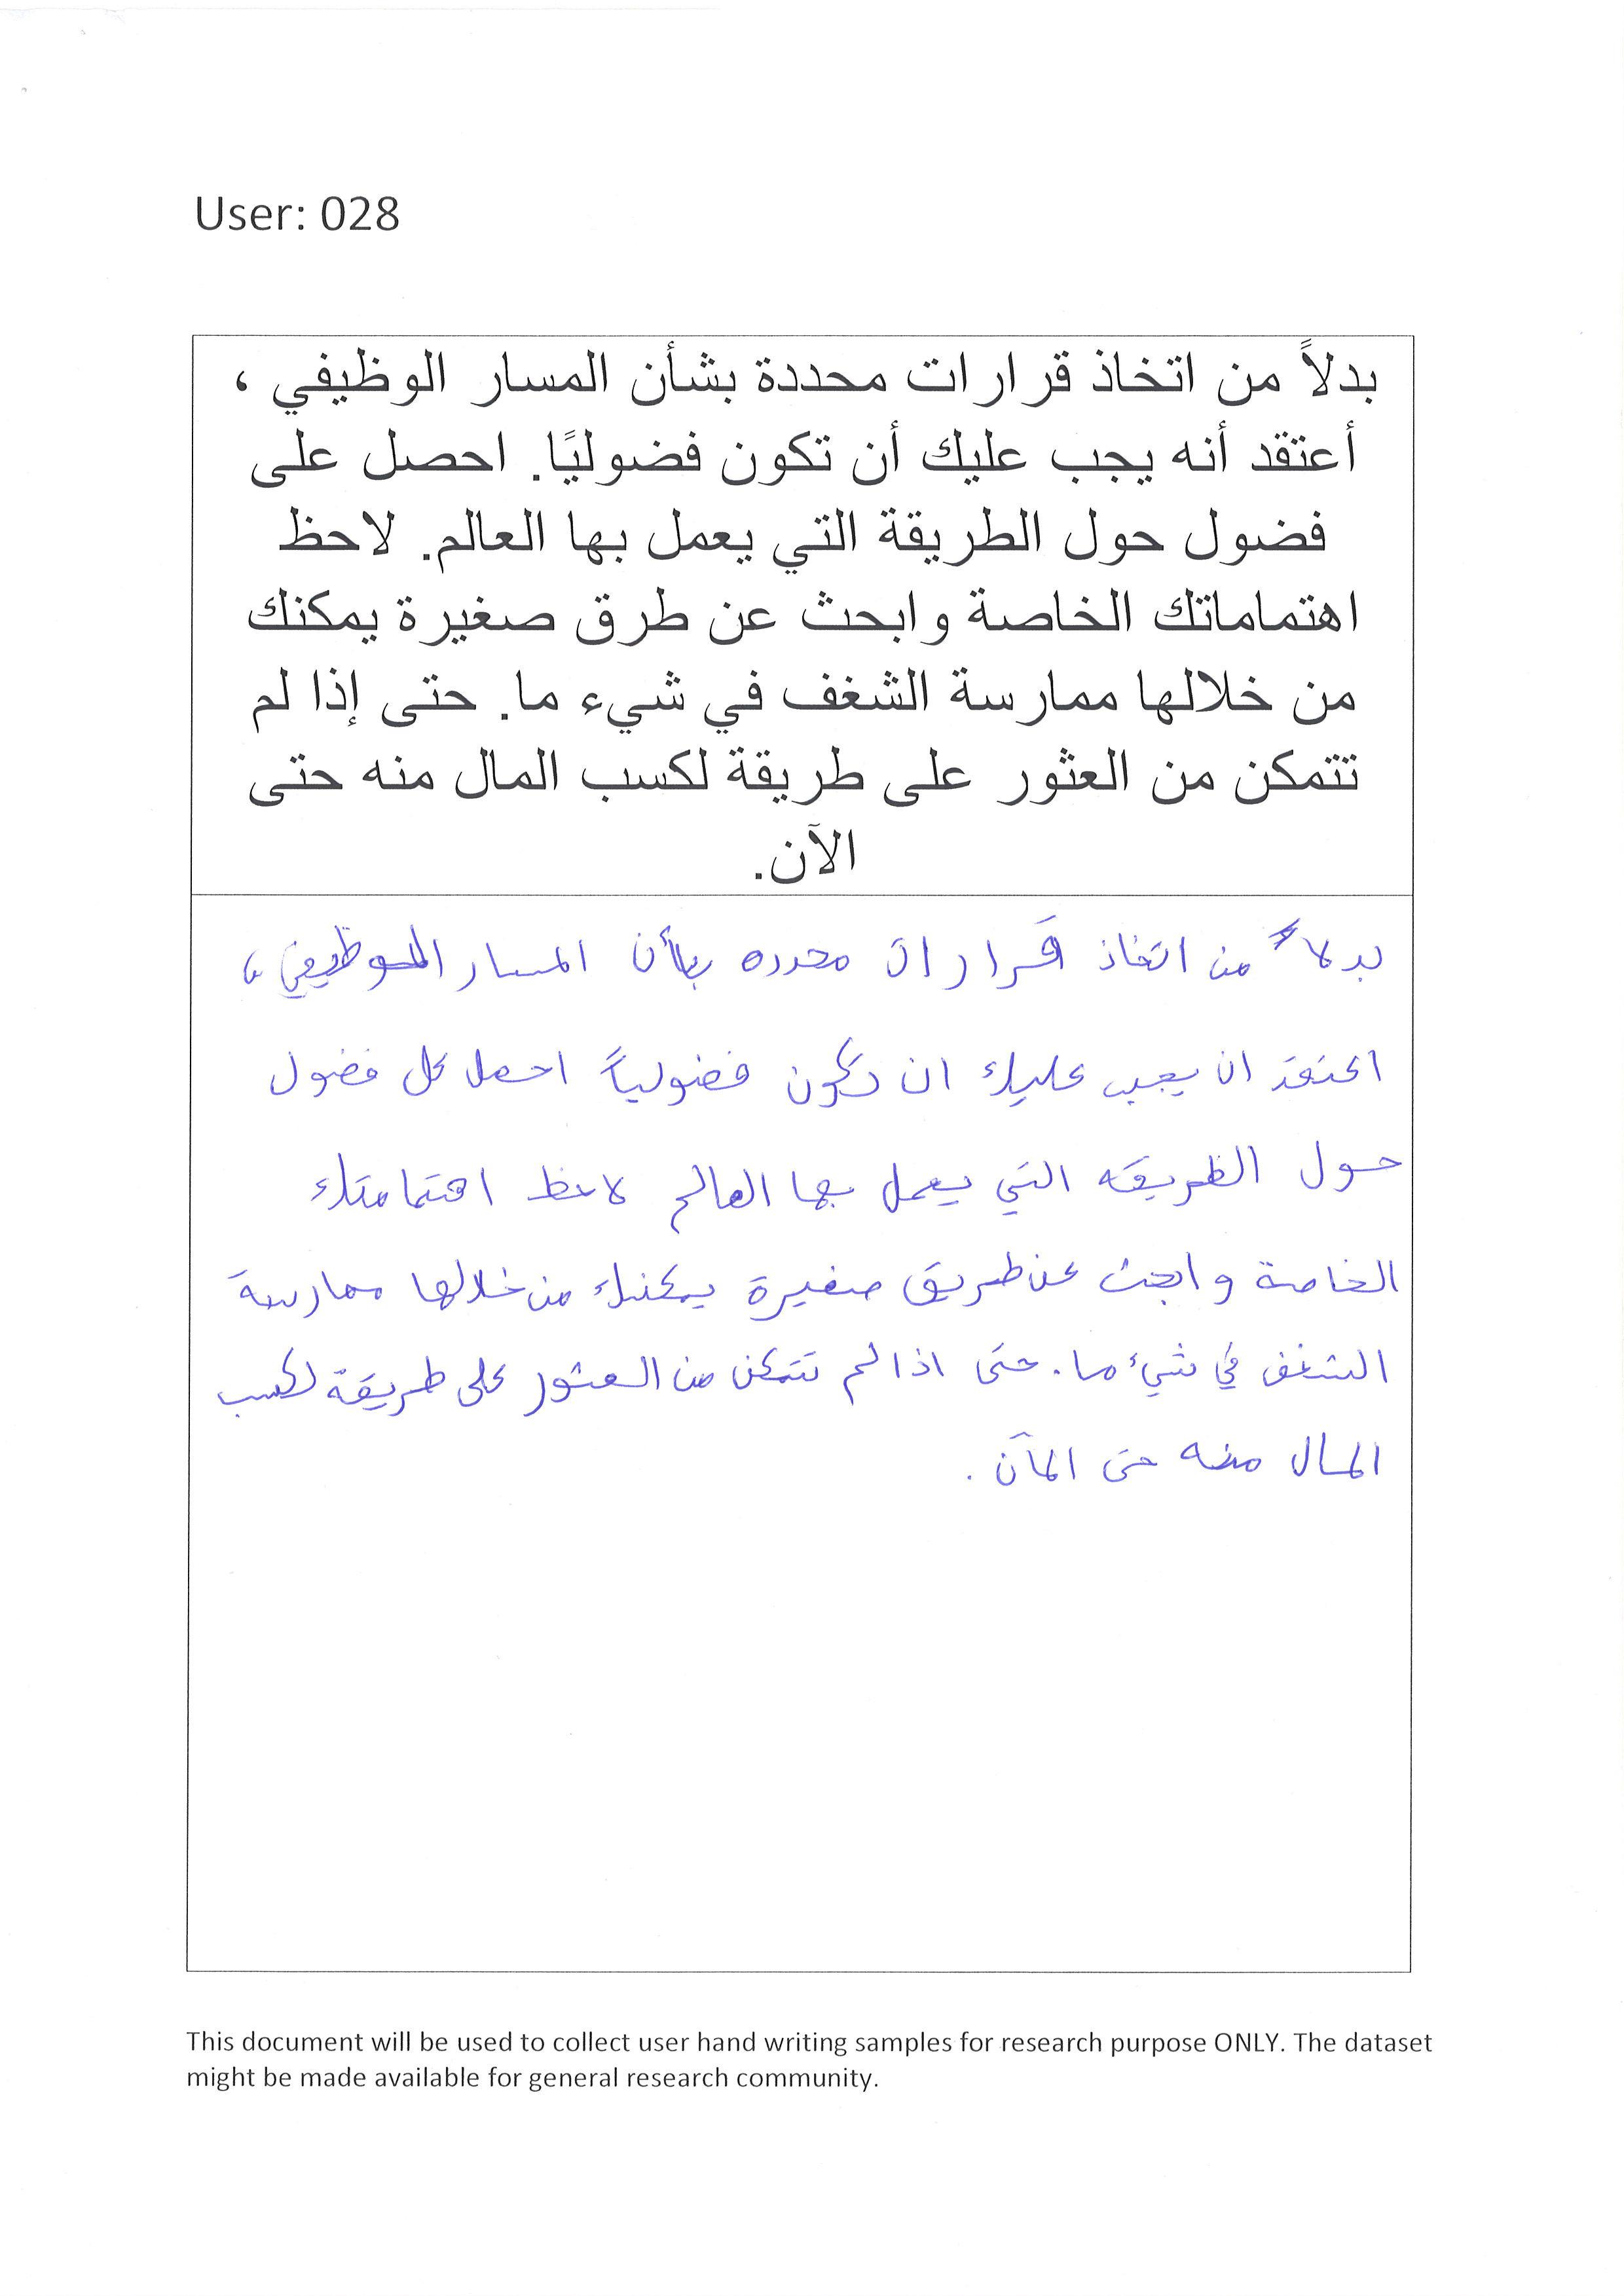 User: 028
بدلاً من اتخاذ قرارات محددة بشأن المسار الوظيفي ،
أعتقد أنه يجب عليك أن تكون فضوليًا. احصل على
فضول حول الطريقة التي يعمل بها العالم. لاحظ
اهتماماتك الخاصة وابحث عن طرق صغيرة يمكنك
من خلالها ممارسة الشغف في شيء ما. حتى إذا لم
تتمكن من العثور على طريقة لكسب المال منه حتى
الآن.
بدلاً من اتخاذ قرارات محدده بشأن المسار الوظيفي ،
اعتقد ان يجب عليك ان تكون فضولياً احصل على فضول
حول الطريقه التي يعمل بها العالم لاحظ اهتمامتك
الخاصة وابحث عن طريق صغيرة يمكنك من خلالها ممارسة
الشغف في شيء ما. حتى اذا لم تتمكن من العثور على طريقة لكسب
المال منه حتى الآن .
This document will be used to collect user hand writing samples for research purpose ONLY. The dataset
might be made available for general research community.